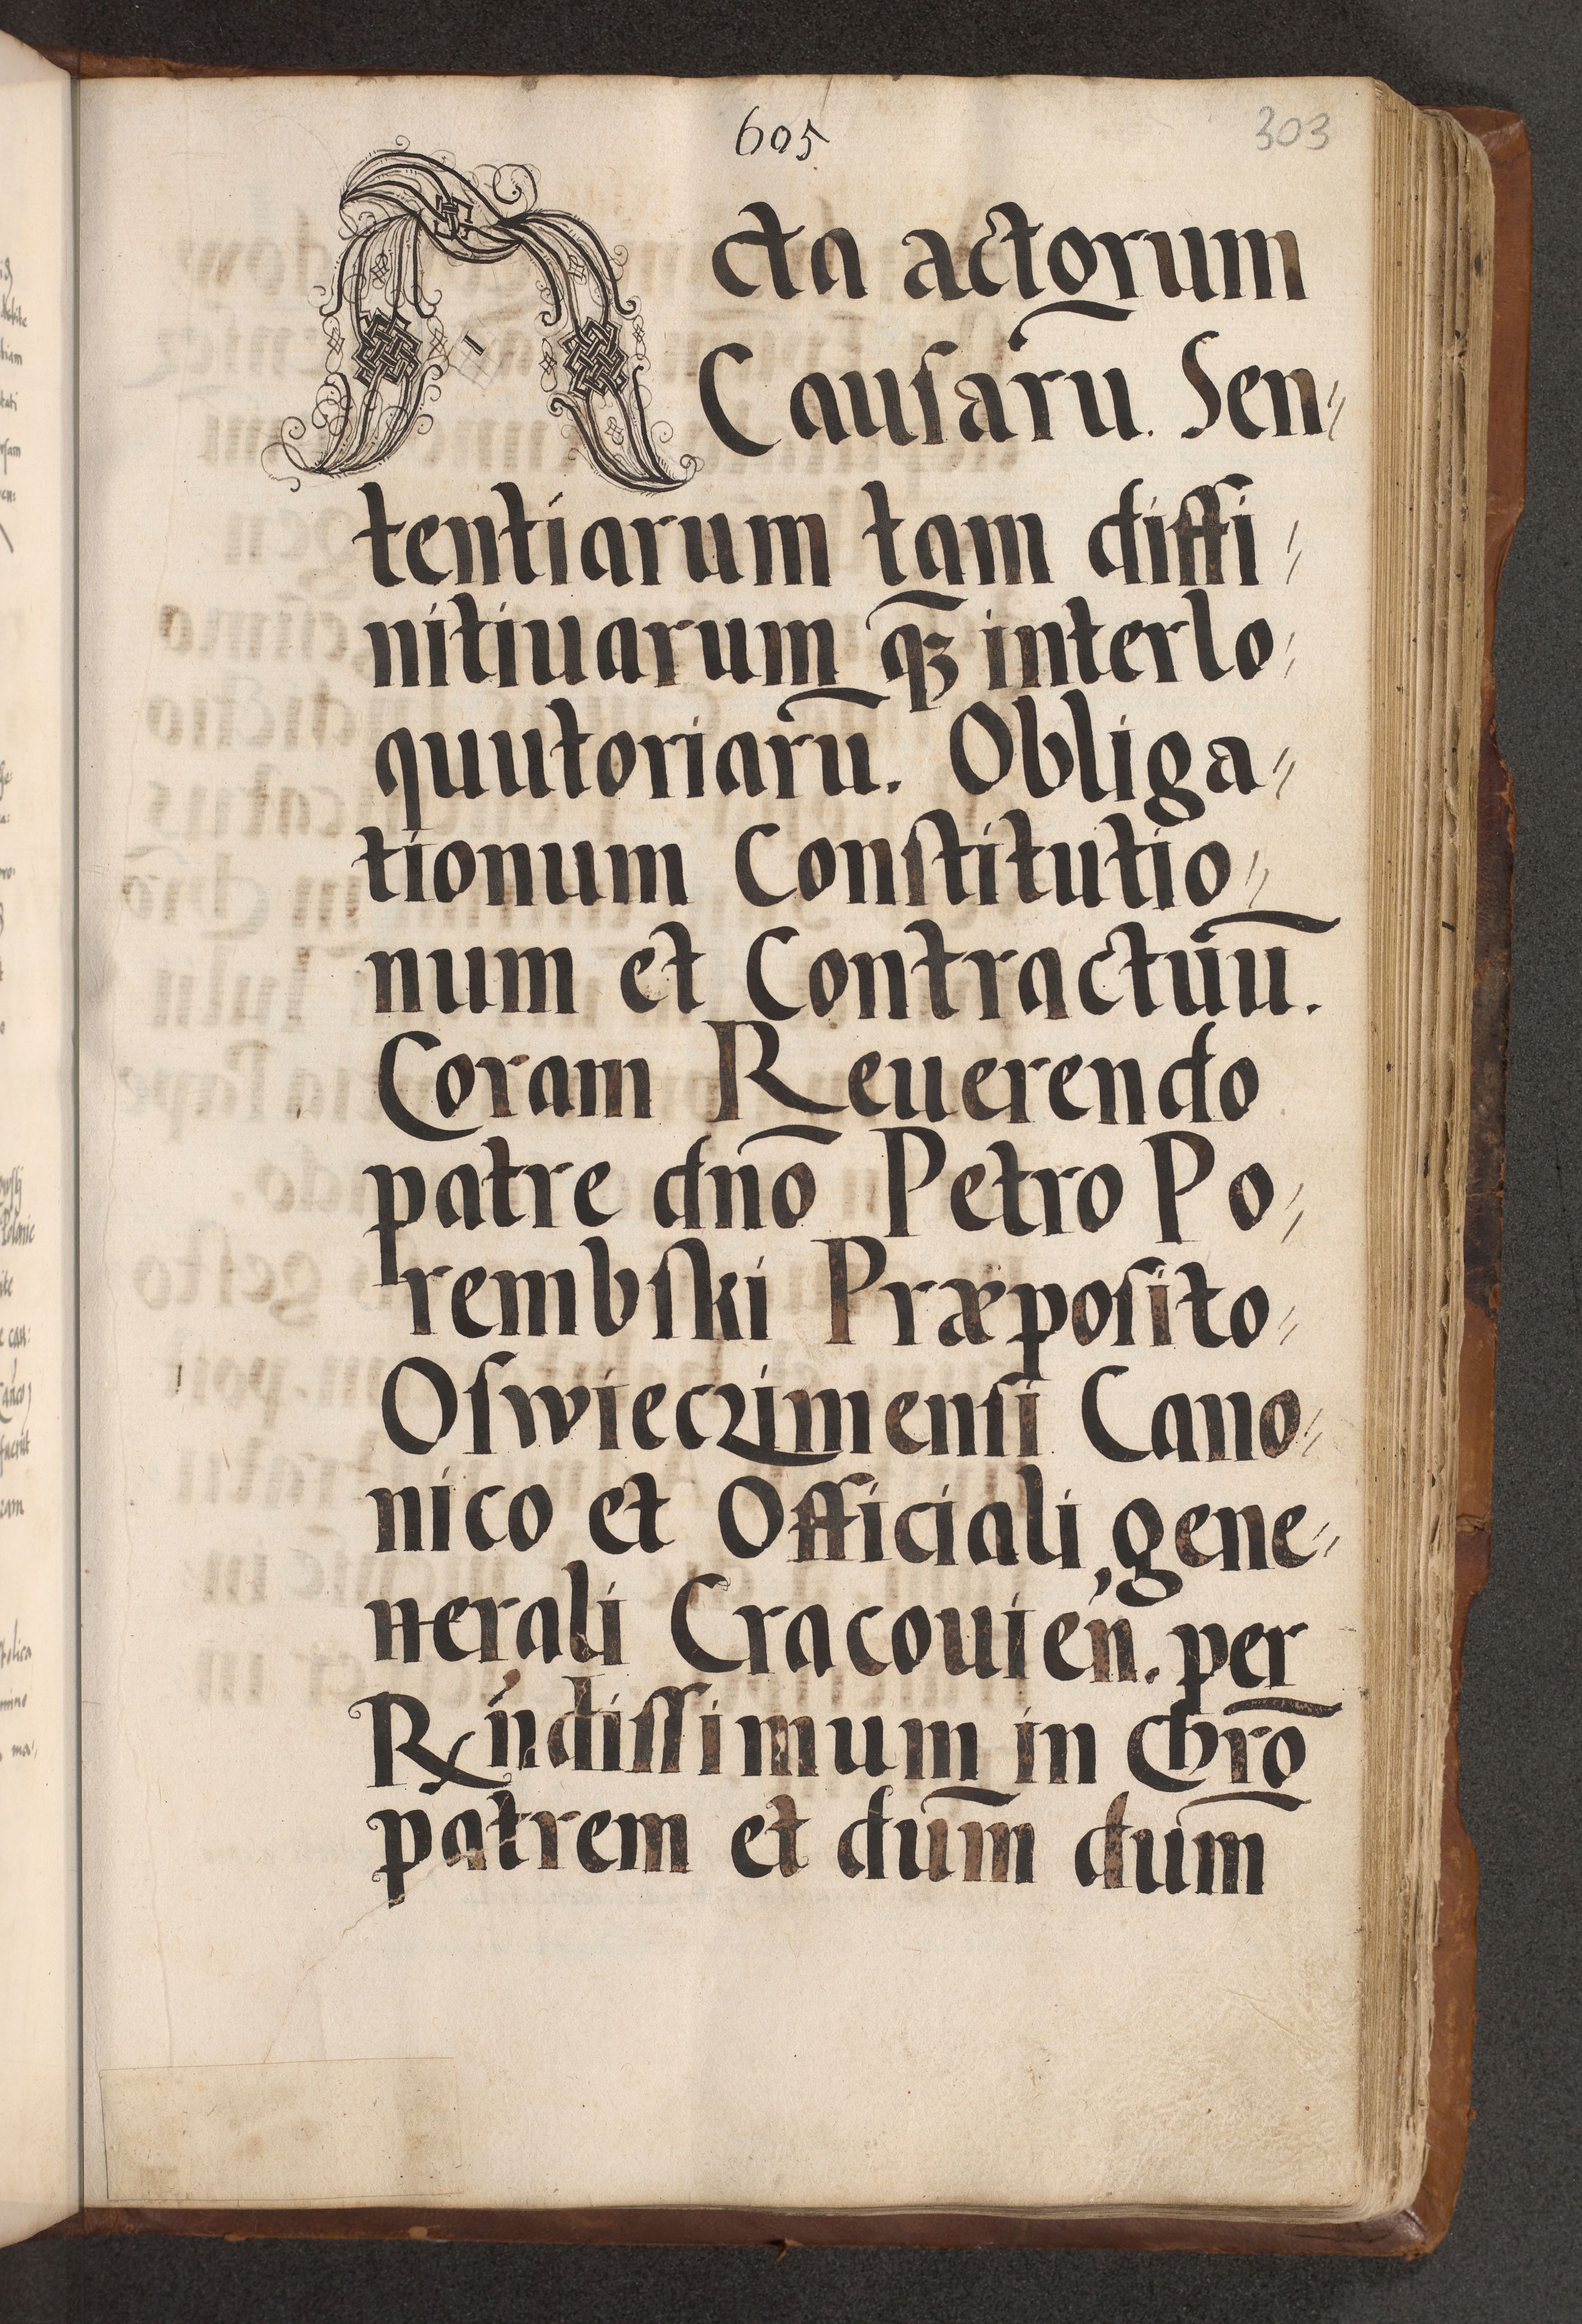 605
303
Acta actorum
Causarū. Sen⸗
tentiarum tam diffi⸗
nitiuarum q̄ꝫ interlo⸗
quutoriarū. Obliga⸗
tionum Constitutio⸗
num et Contractuū.
Coram Reuerendo
patre dn̄o Petro Po⸗
rembski Præposito⸗
Oswieczimensi Cano⸗
nico et Officiali gene⸗
nerali Cracouień. per
Rńdissimum in Chrō
patrem et dūm dūm